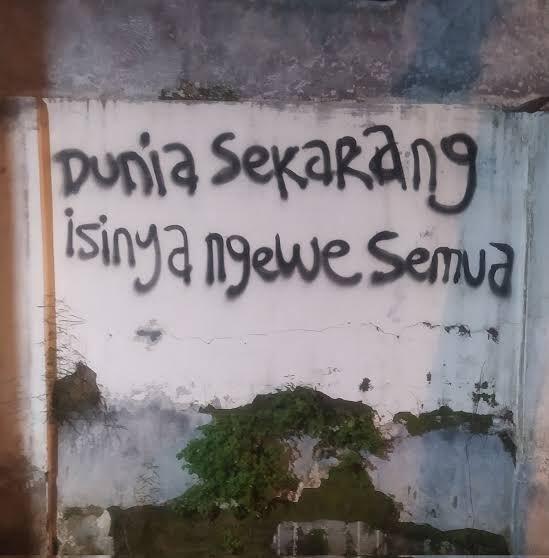 Dunia Sekarang
isinya ngewe Semua